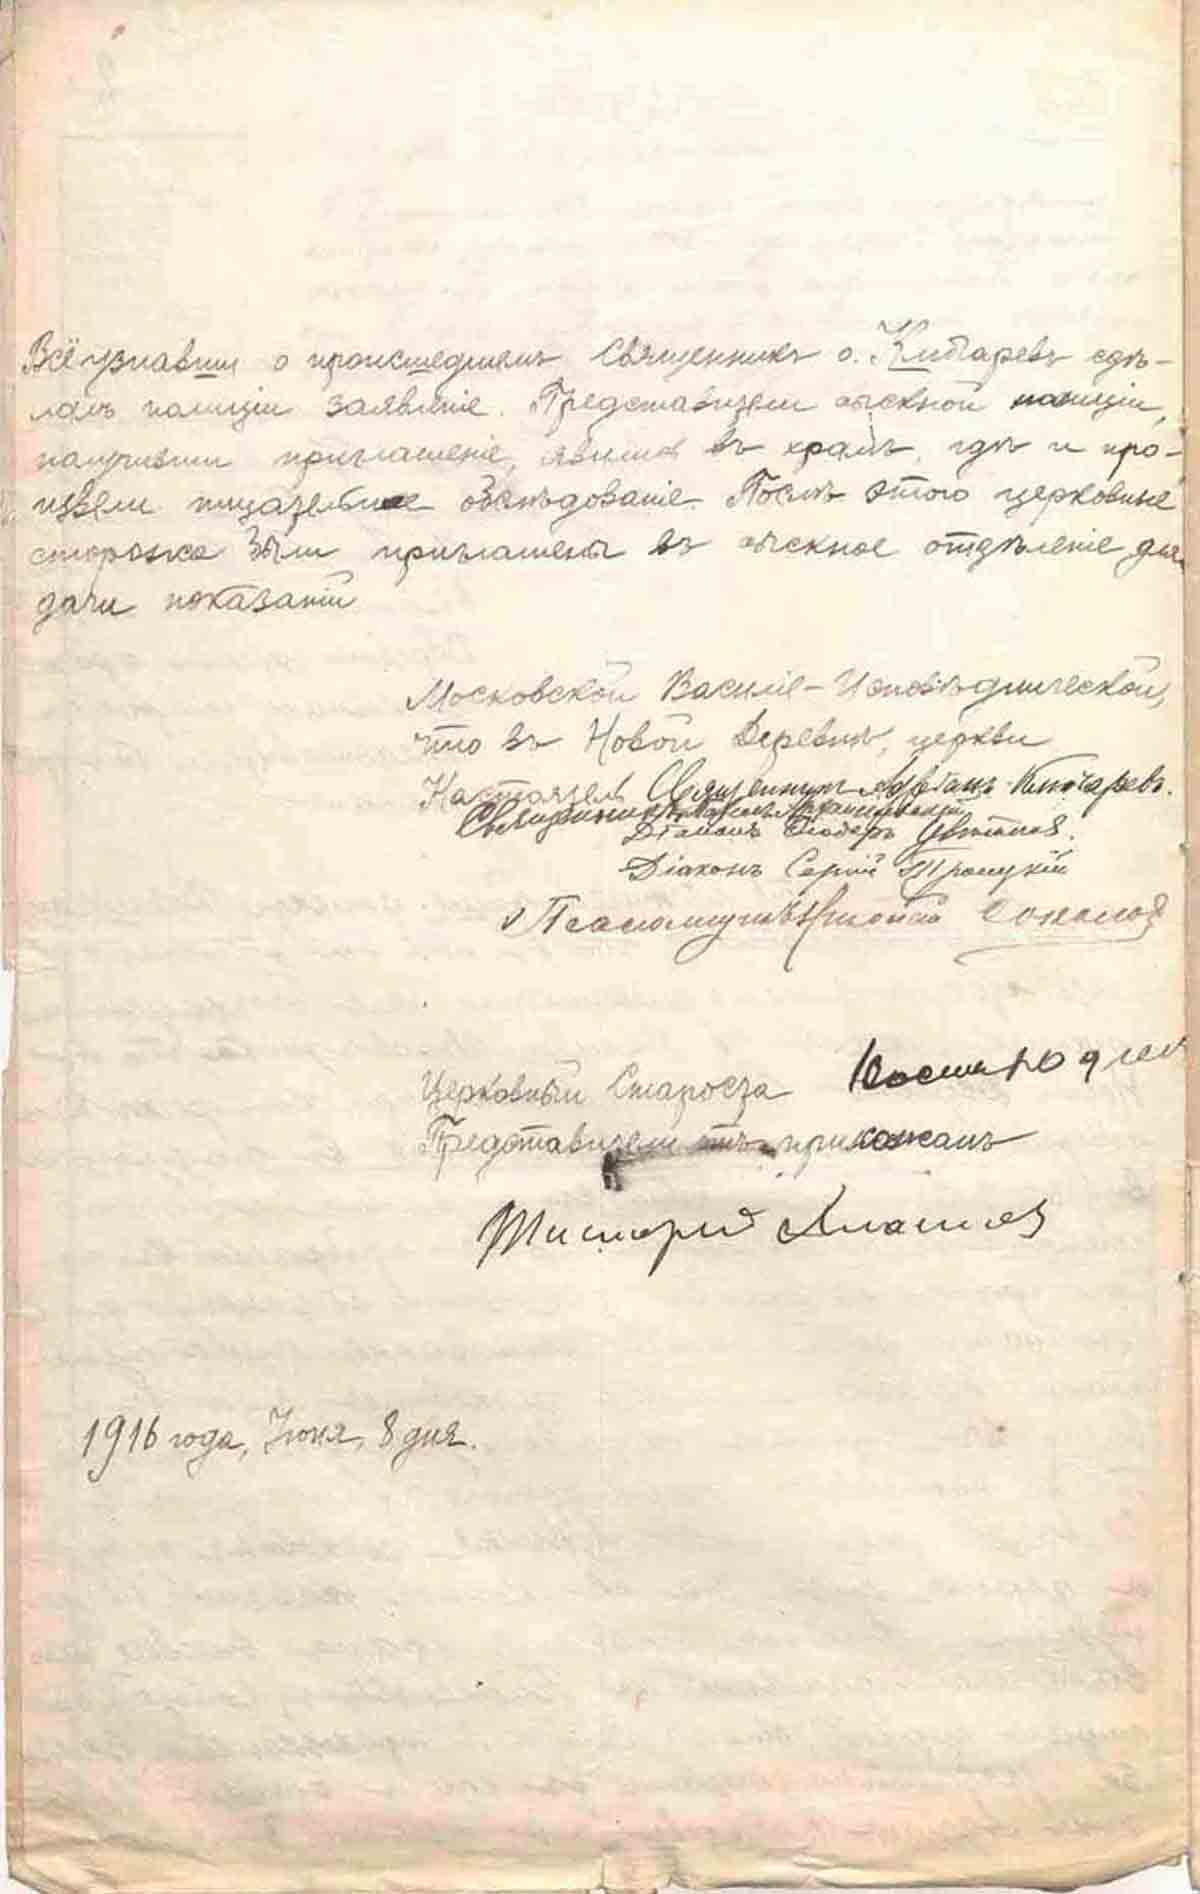 Всё узнавши о происшедшемъ Священникъ о. Ключаревъ сдѣ-
лалъ полиціи заявленіе. Представители сыскной полиціи,
получивши приглашеніе, явились въ храмъ, гдѣ и про-
извели тщательное обслѣдованіе. Послѣ этого церковные
сторожа были приглашены въ сыскное отдѣленіе для
дачи показаній
Московской Василіе-Исповѣднической,
что въ Новой Деревнѣ, церкви
Настоятель Священникъ Адріанъ Ключаревъ.
Священникъ
Діаконъ Ѳеодоръ Цвѣтковъ.
Діаконъ Сергій Троицкій
Псаломщикъ Николай Соколовъ
Церковный Староста
Представители отъ прихожанъ
1916 года, Іюня, 8 дня.